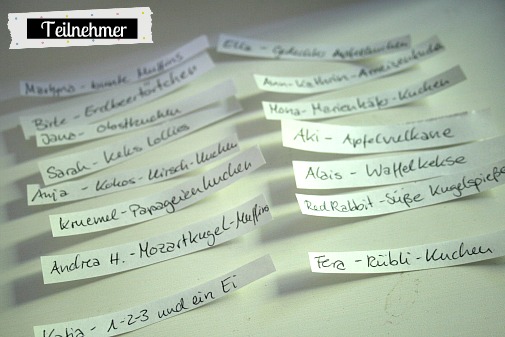 Teilnehmer
Martyna - bunte Muffins
Birte - Erdbeertörtchen
Jana - Obstkuchen
Sarah - Keks Lollies
Anja - Kokos-Kirsch-Kuchen
Kruemel - Papageienkuchen
Andrea H. - Mozartkugel-Muffins
Katja - 1-2-3 und ein Ei
Ella - Apfelkuchen
Ann-Kathrin - Ameisenkuchen
Mona - Marienkäfer-Kuchen
Aki - Apfelvulkane
Alais - Waffelkekse
RedRabbit - Süße Kugelspieße
Fera - Rübli-Kuchen